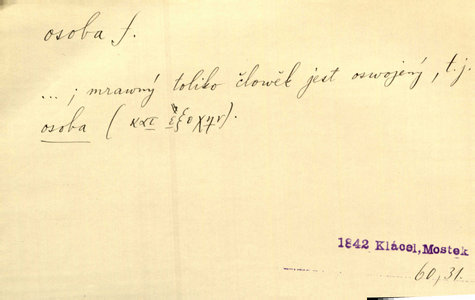 osoba f.
...; mrawný toliko člowěk jest oswojený, t.j.
osoba (κατ ἐξοχην).
1842 Klácel, Mostek
60, 31.